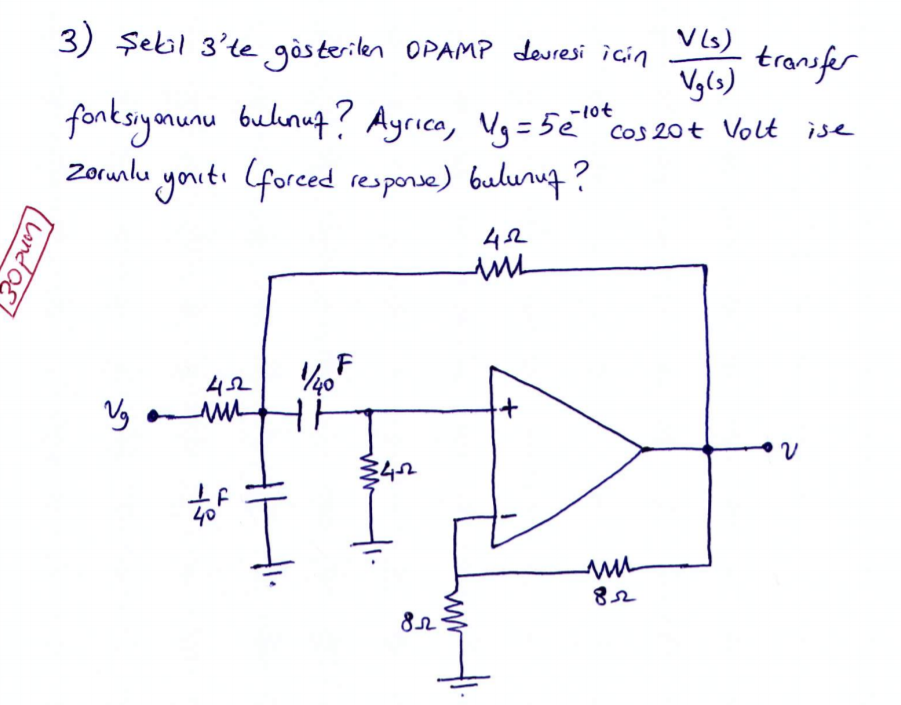 3) Şekil 3'te gösterilen OPAMP devresi için V(s)/Vg(s) transfer
fonksiyonunu bulunuz? Ayrıca, Vg = 5e^-10t cos20t Volt ise
zorunlu yanıtı (forced response) bulunuz?
30 puan
4Ω
4Ω
1/40 F
Vg
+
v
4Ω
1/40 F
-
8Ω
8Ω